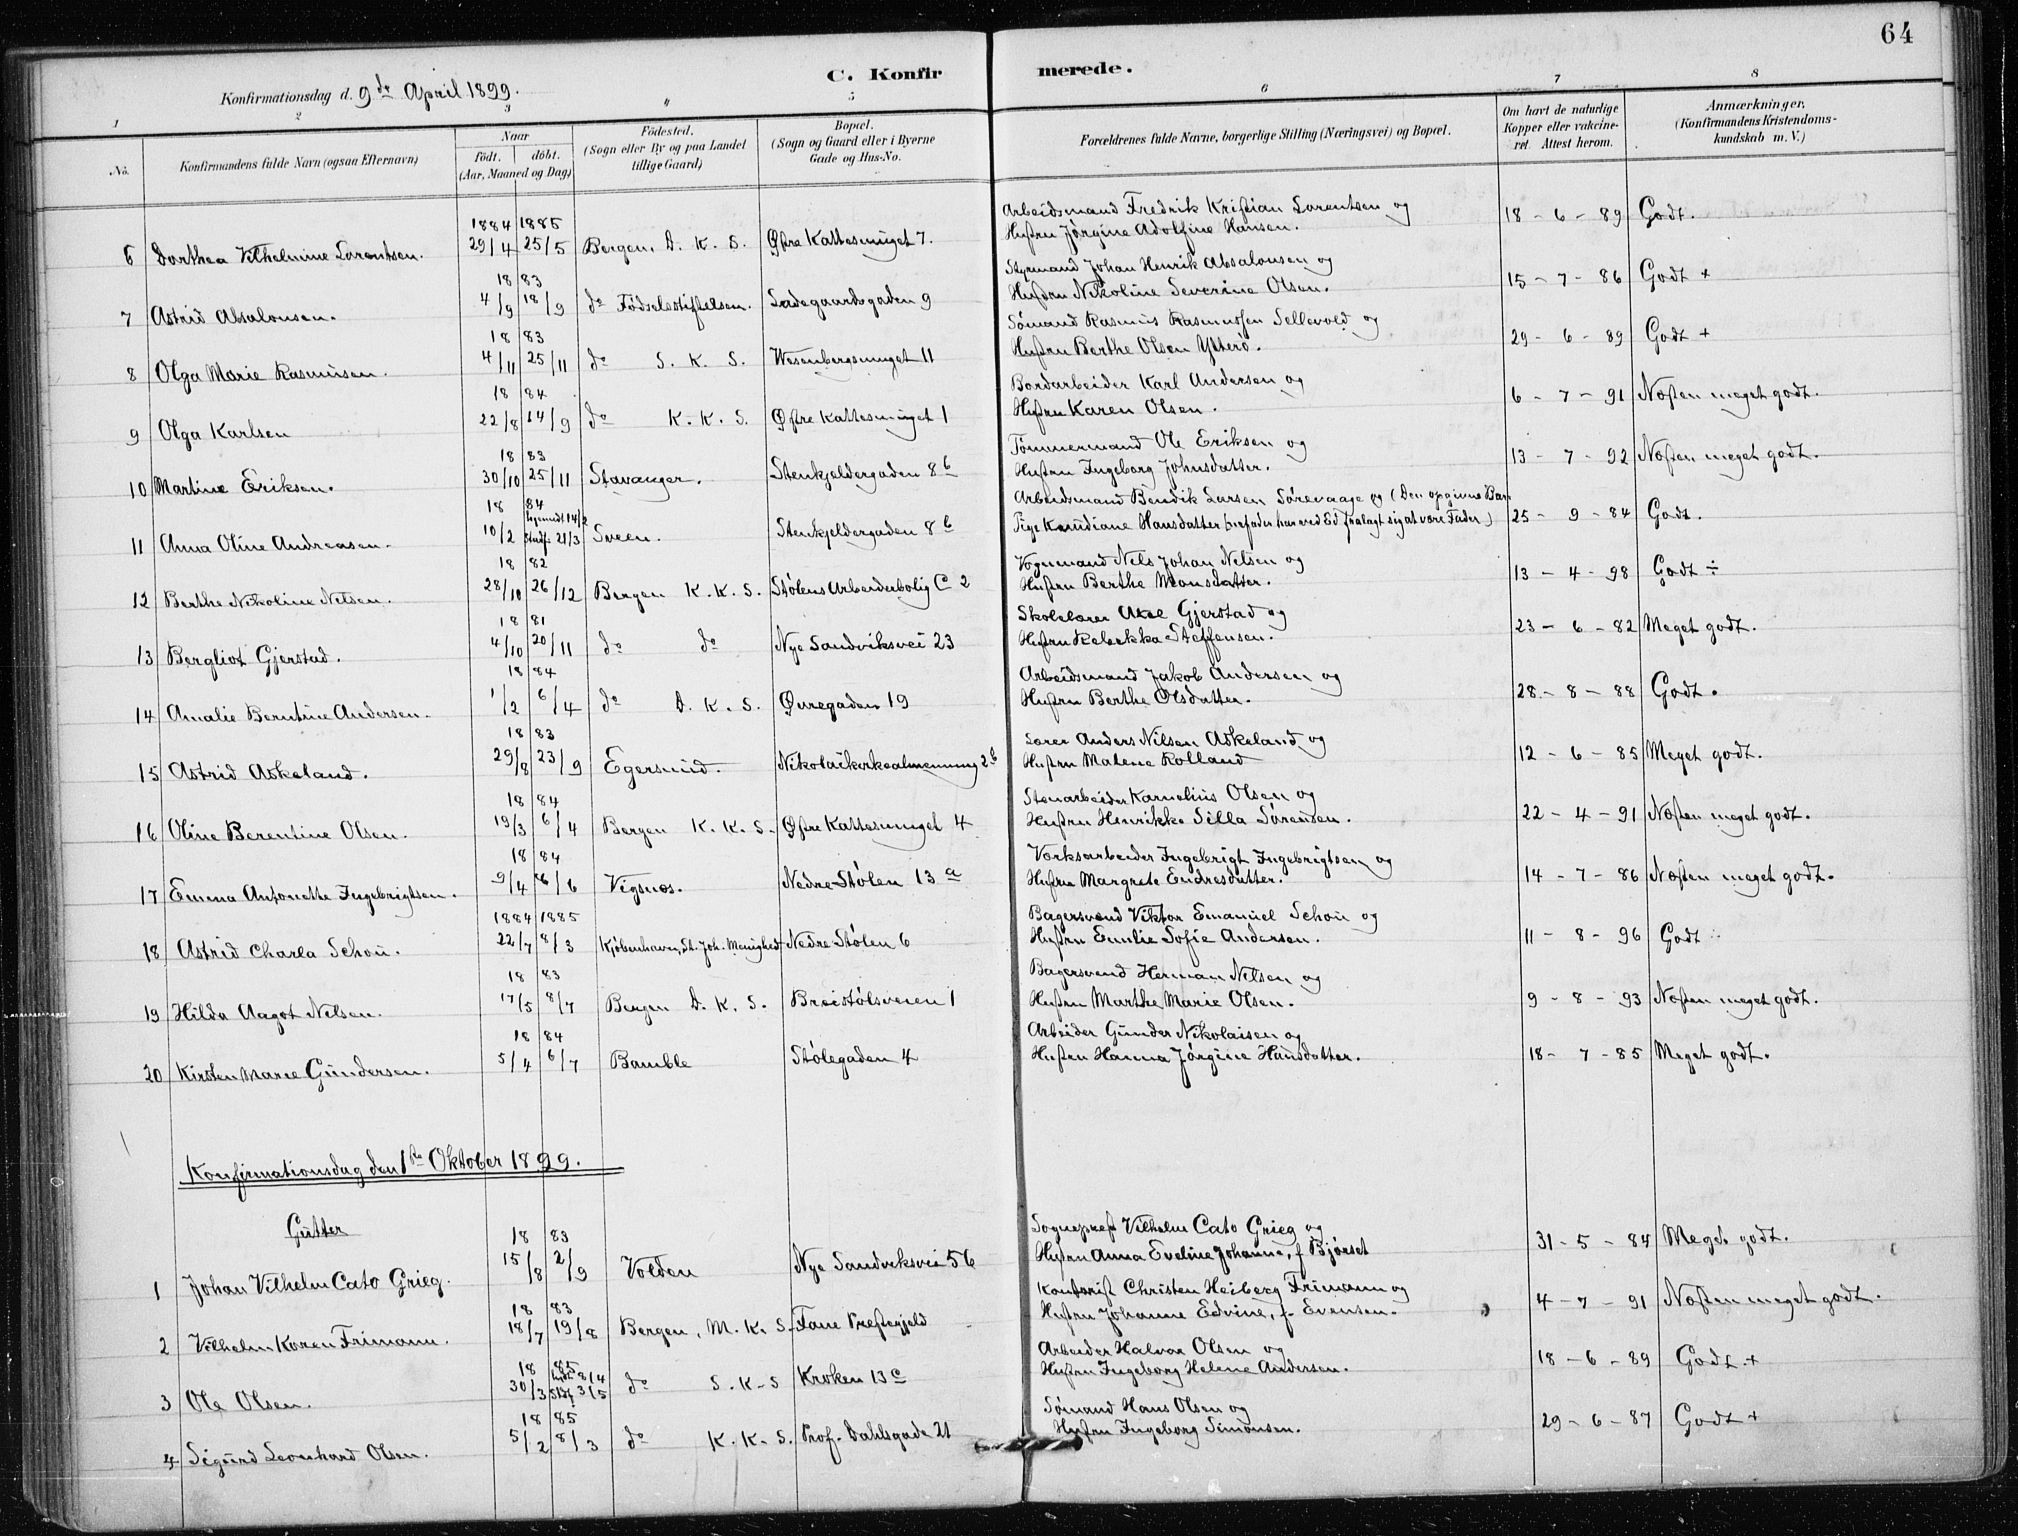 64
C. Konfirmerede.
Konfirmationsdag d. 9de April 1899.
1 2 3 4 5 6 7 8
No. Konfirmandens fulde Navn (ogsaa Efternavn) Naar født. døbt. (Aar, Maaned og Dag) Fødested. (Sogn eller By og paa Landet tillige Gaard) Bopæl. (Sogn og Gaard eller i Byerne Gade og Hus-No. Forældrenes fulde Navne, borgerlige Stilling (Næringsvei) og Bopæl. Om havt de naturlige Kopper eller vakcineret. Attest herom. Anmærkninger, (Konfirmandens Kristendomskundskab m. V.)
1884 1885 Arbeidsmand Fredrik Kristian Lorentsen og
6 Dorthea Vilhelmine Lorentsen. 29/4 25/5 Bergen, D. K. S. Øftre Kattesmuget 7. Huftru Jørgine Adolfine Hansen. 18-6-89 Godt.
18 83 Styrmand Johan Henrik Absalonsen og
7 Astrid Absalonsen. 4/9 18/9 do Fødselsstiftelsen. Ladegaardsgaden 9 Huftru Nikoline Severine Olsen. 15-7-86 Godt +
18 83 Sømand Rasmus Rasmussen Sellevold og
8 Olga Marie Rasmusen. 4/11 25/11 do S. K. S. Wesenbergsmuget 11 Huftru Berthe Olsen Ytterø. 29-6-89 Godt +
18 84 Bordarbeider Karl Andersen og
9 Olga Karlsen 22/8 14/9 do K. K. S. Øftre Kattesmuget 1 Huftru Karen Olsen. 6-7-91 Næften meget godt.
18 83 Tømmermand Ole Eriksen og
10 Martine Eriksen. 30/10 25/11 Stavanger. Stenkjeldergaden 8b Huftru Ingeborg Johnsdatter. 13-7-92 Næften meget godt.
18 84 Arbeidsmand Bendik Larsen Sørevaage og (Den opgivne Bar-
11 Anna Oline Andreasen. 10/2 14/2 Stadf. 21/3 Sveen. Stenkjeldergaden 8b Pige Hansdatter nefader har ved Ed fralagt sig at være Fader) 25-9-84 Godt.
18 82 Vognmand Nels Johan Nelsen og
12 Berthe Nikoline Nelsen. 28/10 26/12 Bergen K. K. S. Stølens Arbeiderbolig C 2 Huftru Berthe Monsdatter. 13-4-98 Godt ÷
18 81 Skolelærer Axel Gjerstad og
13 Bergliot Gjerstad. 4/10 20/11 do do Nye Sandviksvei 23 Huftru Rebekka Steffensen. 23-6-82 Meget godt.
18 84 Arbeidsmand Jakob Andersen og
14 Amalie Berntine Andersen. 1/2 6/4 do D. K. S. Øvregaden 19 Huftru Berthe Olsdatter. 28-8-88 Godt.
18 83 Lærer Anders Nilsen Askeland og
15 Astrid Askeland. 29/8 23/9 Egersund. Nikolaikirkealmenning 2b Huftru Malene Rolland 12-6-85 Meget godt.
18 84 Stenarbeider Kornelius Olsen og
16 Oline Berentine Olsen. 19/3 6/4 Bergen K. K. S. Øftre Kattesmuget 4 Huftru Henrikke Silla Sørensen. 22-4-91 Næften meget godt.
18 84 Værksarbeider Ingebrigt Ingebrigtsen og
17 Emma Antonette Ingebrigtsen. 9/4 /6 Vigsnæs. Nedre Stølen 13a Huftru Margrete Endresdatter. 14-7-86 Næften meget godt.
1884 1885 Bagersvend Viktor Emanuel Schou og
18 Astrid Charla Schou. 22/7 8/3 Kjøbenhavn, St. Joh. Menighed Nedre Stølen 6 Huftru Emilie Sofie Andersen. 11-8-96 Godt
18 83 Bagersvend Herman Nelsen og
19 Hilda Aagot Nelsen. 17/5 8/7 Bergen D. K. S. Breistølsveien 1 Huftru Marthe Marie Olsen. 9-8-93 Næften meget godt.
18 84 Arbeider Gunder Nikolaisen og
20 Kirsten Marie Gundersen. 5/4 6/7 Bamble Stølegaden 4 Huftru Hanna Jørgine Hansdatter. 18-7-85 Meget godt.
Konfirmationsdag den 1ste Oktober 1899.
Gutter
18 83 Sogneprest Vilhelm Cato Grieg og
1 Johan Vilhelm Cato Grieg. 15/8 2/9 Volden Nye Sandviksvei 56 Huftru Anna Eveline Johanne, f. Bjørset 31-5-84 Meget godt.
18 83 Kontorist Christen Heiberg Frimann og
2 Vilhelm Koren Frimann. 18/7 19/8 Bergen, M. K. S. Fane Prestegjeld Huftru Johanne Edvine, f. Evensen. 4-7-91 Næften meget godt.
18 85 Arbeider Halvor Olsen og
3 Ole Olsen. 30/3 8/4 Stdf. 3/5 do S. K. S Kroken 13c Huftru Ingeborg Helene Andersen. 18-6-89 Godt +
18 85 Sømand Hans Olsen og
4 Sigurd Leonhard Olsen. 5/2 8/3 do K. K. S. Prof. Dahlsgade 21 Huftru Ingeborg Simonsen. 29-6-87 Godt +